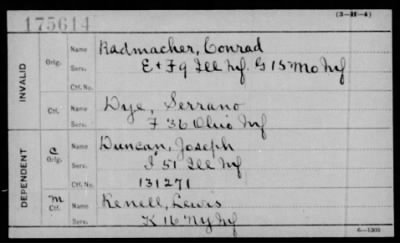 175614
(3—H—4)
INVALID
Orig.
Name Radmacher, Conrad
Serv. E & F 9 Ill Inf. G 15 Mo Inf
Ctf. No.
Ctf.
Name Dye, Serrano
Serv. F 36 Ohio Inf
DEPENDENT
C
Orig.
Name Duncan, Joseph
Serv. I 51 Ill Inf
Ctf. No. 131271
M
Ctf.
Name Renell, Lewis
Serv. K 16 NY Inf
6—1303